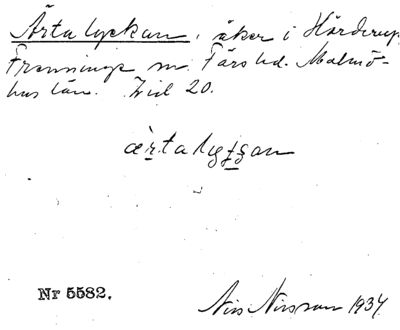 Ärtalyckan, åker i Hårderup,
Frenninge sn. Färs hd. Malmö-
hus län. Zid 20.
ærtalygg̥an
Nr 5582. Nils Nilsson 1937